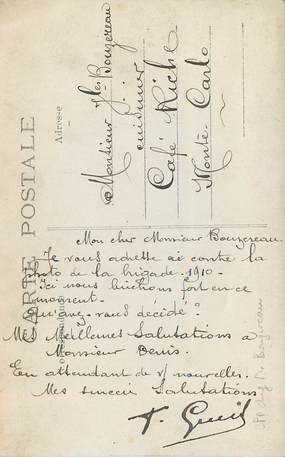 CARTE POSTALE
Adresse
Monsieur Jles Bouzereau
cuisinier
Café Riche
Monte-Carlo
Mon cher Monsieur Bouzereau.
Je vous adresse ci contre la
photo de la brigade-1910-
Ici nous bûchons fort en ce
moment.
Qu'avez-vous décidé?
Mes Meilleures Salutations a
Monsieur Benis.
En attendant de v/ nouvelles.
Mes sincèr Salutations